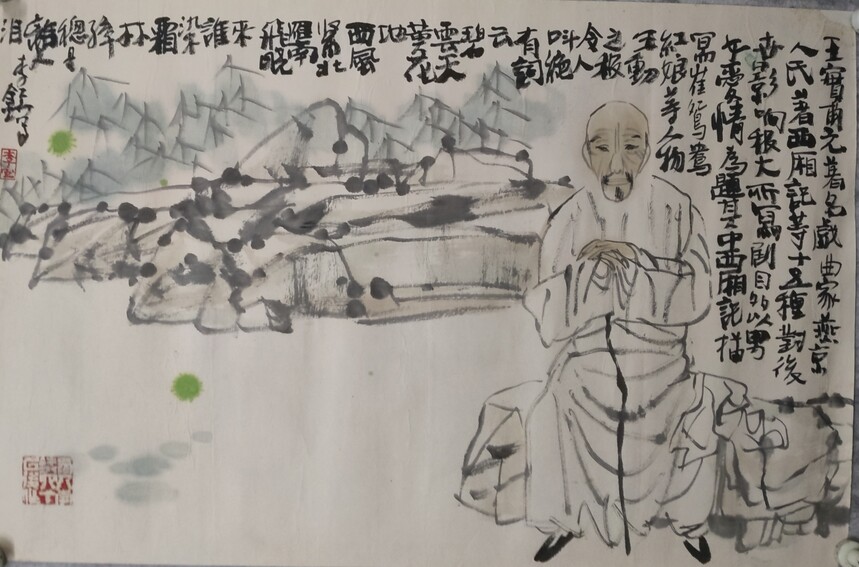 王實甫元著名戲曲家燕京
人民著西厢記等十五種對後
世影响很大所寫劇目多以男
女愛情為題其中西厢記描
寫崔鶯鶯
紅娘等人物
生動
之极
令人
叫绝
有詞
云
碧
雲天
黄花
地
西風
紧北
雁南
飛晓
來
誰
染
霜
林
醉
總是
離人
泪